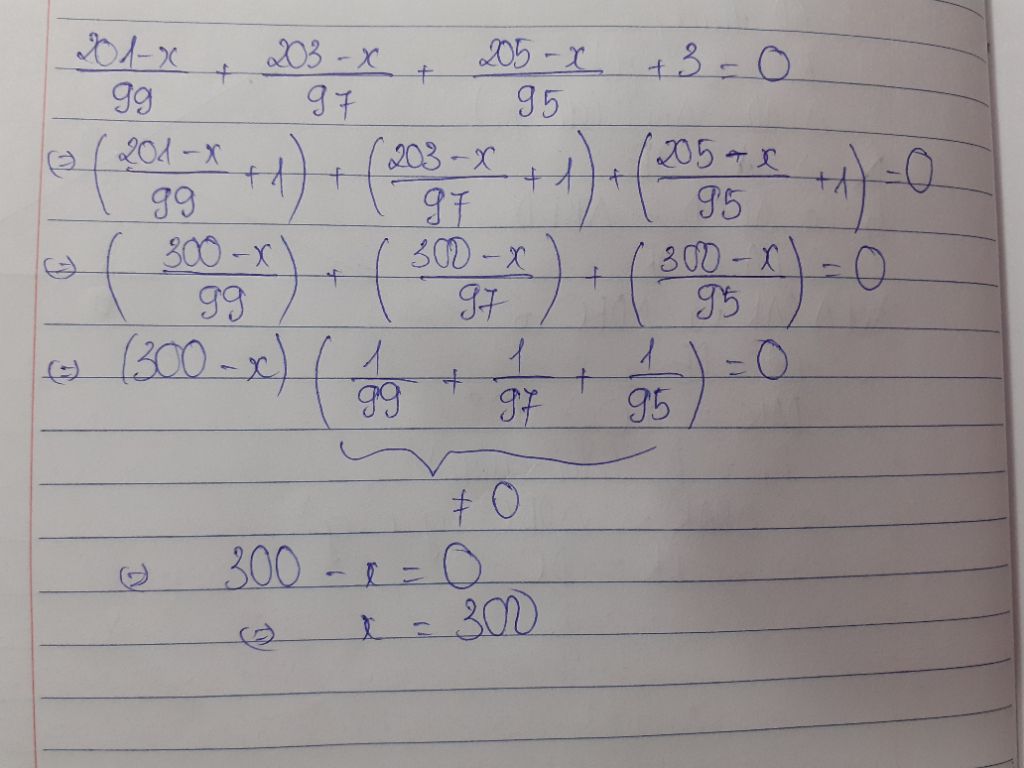 (201-x)/99 + (203-x)/97 + (205-x)/95 + 3 = 0
(=) ((201-x)/99 + 1) + ((203-x)/97 + 1) + ((205-x)/95 + 1) = 0
(=) ((300-x)/99) + ((300-x)/97) + ((300-x)/95) = 0
(=) (300-x) (1/99 + 1/97 + 1/95) = 0
≠ 0
(=) 300 - x = 0
(=) x = 300